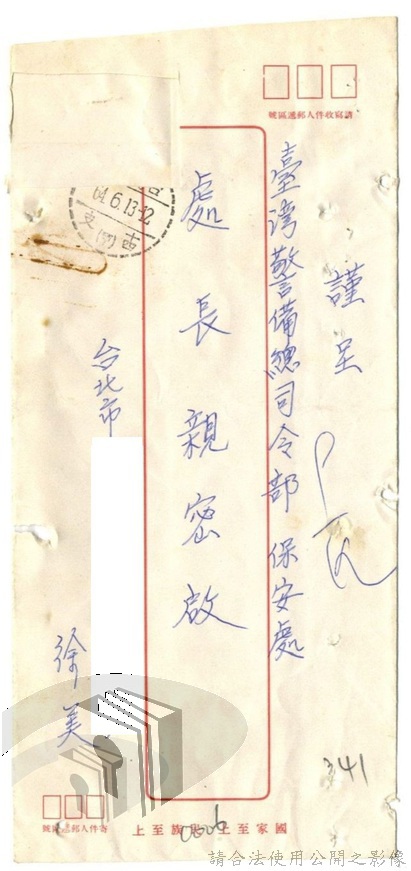 請寫收件人郵遞區號
謹呈
臺灣警備總司令部 保安處
處長親密啟
64.6.13-12
台北市
徐美
341
寄件人郵遞區號
國家至上 民族至上
0006
請合法使用公開之影像